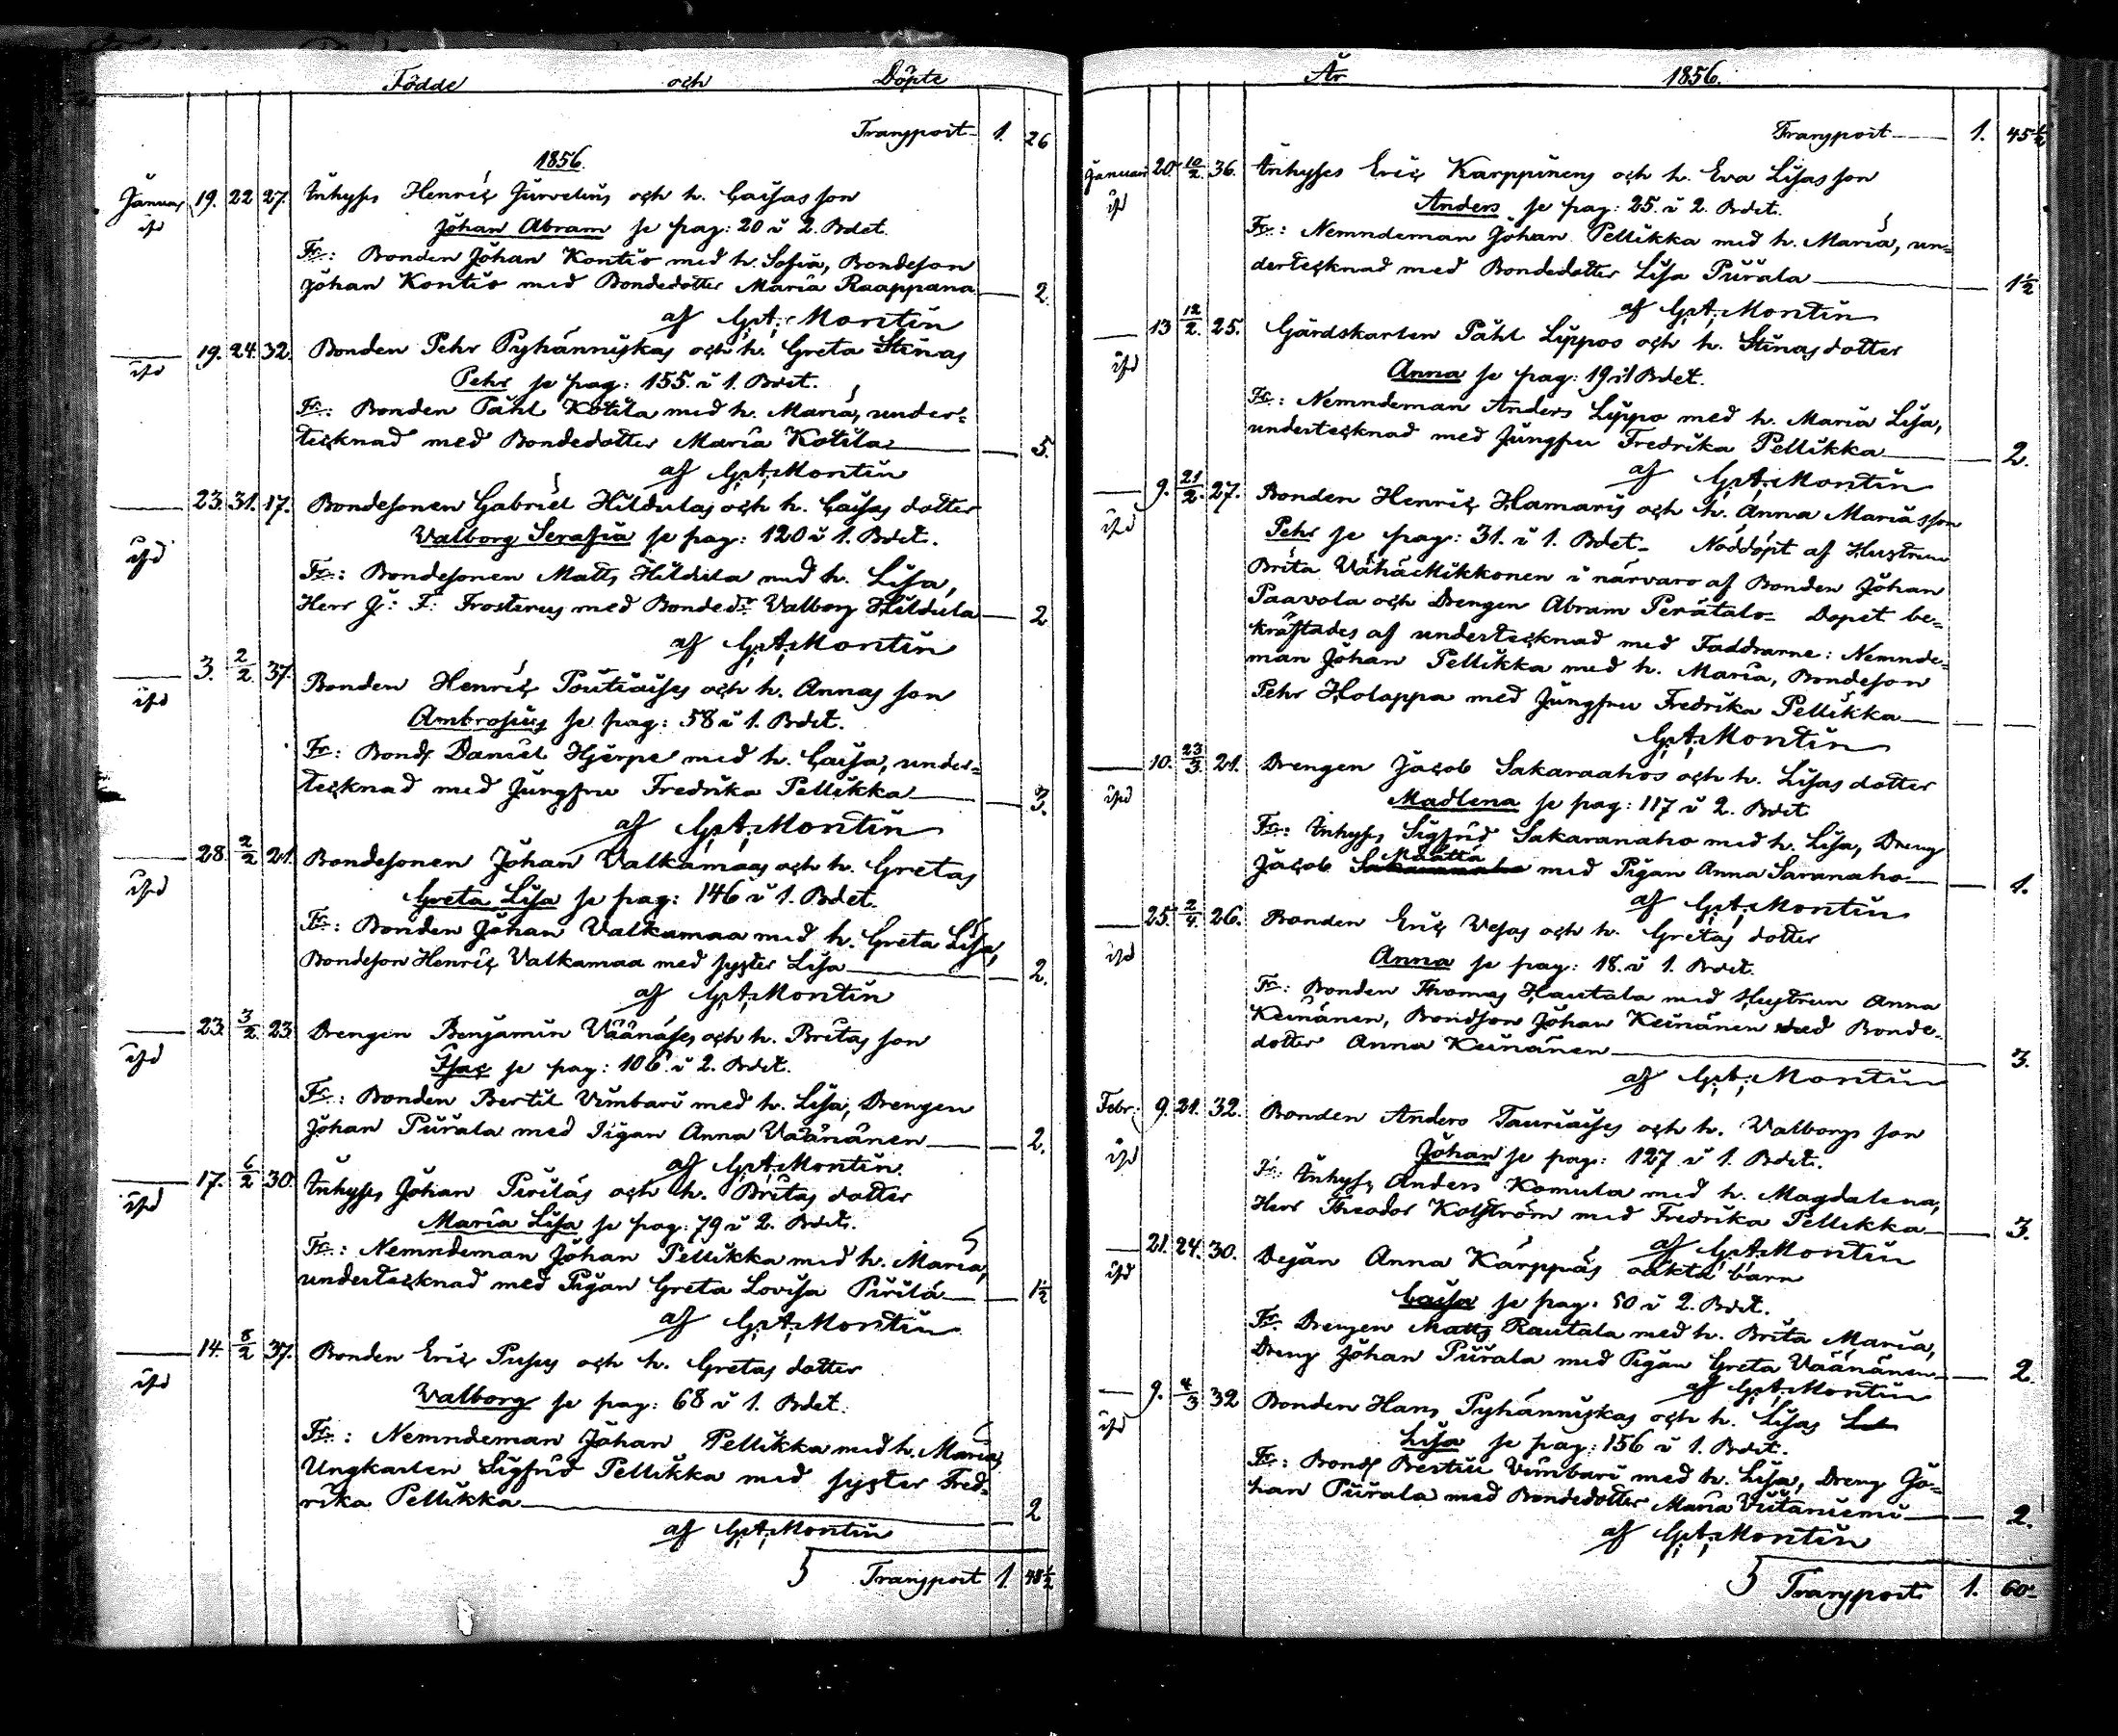 Födde och Döpte
Transport 1. 26
1856.
Januar 19. 22 27. Inhyses Henric Jurvelins och h. Caisas son
Johan Abram se pag: 20 i 2. Bdet.
Fr: Bonden Johan Kontio med h. Sofia, Bondeson
Johan Kontio med Bondedotter Maria Raappana 2
af G. A. Montin
19. 24. 32. Bonden Pehr Pyhänniskas och h. Greta Stinas
Pehr se pag: 155. i 1. Bdet.
Fr: Bonden Påhl Kotila med h. Maria, under-
tecknad med Bondedotter Maria Kotila 5.
af G. A. Montin
23. 31. 17. Bondesonen Gabriel Hildulas och h. Caisas dotter
Valborg Serafia se pag: 120 i 1. Bdet.
Fr: Bondesonen Matts Hildula med h. Lisa,
Herr J: F: Frosterus med Bondedr Valborg Hildula 2
af G. A. Montin
3. 2/2 37. Bonden Henric Poutiaises och h. Annas son
Ambrosius se pag: 58 i 1. Bdet.
Fr: Bond. Daniel Hjerpe med h. Caisa, under-
tecknad med Jungfru Fredrika Pellikka 3.
af G. A. Montin
28. 2/2 21. Bondesonen Johan Valkamaas och h. Gretas
Greta Lisa se pag: 146 i 1. Bdet.
Fr: Bonden Johan Valkamaa med h. Greta Lisa,
Bondeson Henric Valkamaa med syster Lisa 2.
af G. A. Montin
23. 3/2 23. Drengen Benjamin Väänäses och h. Britas son
Isac se pag: 106 i 2. Bdet.
Fr: Bonden Bertil Vimbari med h. Lisa, Drengen
Johan Piirala med Pigan Anna Väänänen 2.
af G. A. Montin
17. 6/2 30. Inhyses Johan Piriläs och h. Britas dotter
Maria Lisa se pag: 79 i 2. Bdet.
Fr: Nemndeman Johan Pellikka med h. Maria,
undertecknad med Pigan Greta Lovisa Pirilä 1½
af G. A. Montin
14. 8/2 37. Bonden Eric Pusus och h. Gretas dotter
Valborg se pag: 68 i 1. Bdet.
Fr: Nemndeman Johan Pellikka med h. Maria,
Ungkarlen Sigfrid Pellikka med syster Fred-
rika Pellikka 2
af G. A. Montin
Transport 1. 45½
År 1856.
Transport 1. 45½
Januari 20. 10/2. 36. Inhyses Eric Karppinens och h. Eva Lisas son
Anders se pag: 25. i 2. Bdet.
Fr: Nemndeman Johan Pellikka med h. Maria, un-
dertecknad med Bondedotter Lisa Piirala 1½
af G. A. Montin
13 12/2. 25. Gårdskarlen Påhl Lyppos och h. Stinas dotter
Anna se pag: 19 i 1 Bdet.
Fr: Nemndeman Anders Lyppo med h. Maria Lisa,
undertecknad med Jungfru Fredrika Pellikka 2.
af G. A. Montin
9. 21/2. 27. Bonden Henric Hamaris och h. Anna Marias son
Pehr se pag: 31. i 1. Bdet. Nöddöpt af Hustrun
Brita VähäMikkonen i närvaro af Bonden Johan
Paavola och Drengen Abram Perätalo. Dopet be-
kräftades af undertecknad med Faddrarne: Nemnde-
man Johan Pellikka med h. Maria, Bondeson
Pehr Holappa med Jungfru Fredrika Pellikka
G. A. Montin
10. 23/3. 21. Drengen Jacob Sakaraahos och h. Lisas dotter
Madlena se pag: 117 i 2. Bdet
Fr: Inhyses Sigfrid Sakaranaho med h. Lisa, Dreng
Jacob Sakaranaho Määttä med Pigan Anna Saranaho 1.
af G. A. Montin
25. 2/4. 26. Bonden Eric Vesas och h. Gretas dotter
Anna se pag: 18. i 1. Bdet.
Fr: Bonden Thomas Hautala med Hustrun Anna
Keinänen, Bondson Johan Keinänen med Bonde-
dotter Anna Keinänen 3.
af G. A. Montin
Febr: 9. 21. 32. Bonden Anders Tauriaises och h. Valborgs son
Johan se pag: 127 i 1. Bdet.
Fr: Inhyses Anders Komula med h. Magdalena,
Herr Theodor Kolström med Fredrika Pellikka 3.
af G. A. Montin
21. 24. 30. Dejan Anna Karppäs oäkta barn
Caisa se pag: 50 i 2. Bdet.
Fr: Drengen Matts Rautala med h. Brita Maria,
Dreng Johan Piirala med Pigan Greta Väänänen 2.
af G. A. Montin
9. 4/3 32 Bonden Hans Pyhänniskas och h. Lisas
Lisa se pag: 156 i 1. Bdet.
Fr: Bond Bertil Vimbari med h. Lisa, Dreng Jo-
han Piirala med Bondedotter Maria Viitaniemi 2.
af G. A. Montin
Transport 1. 60.